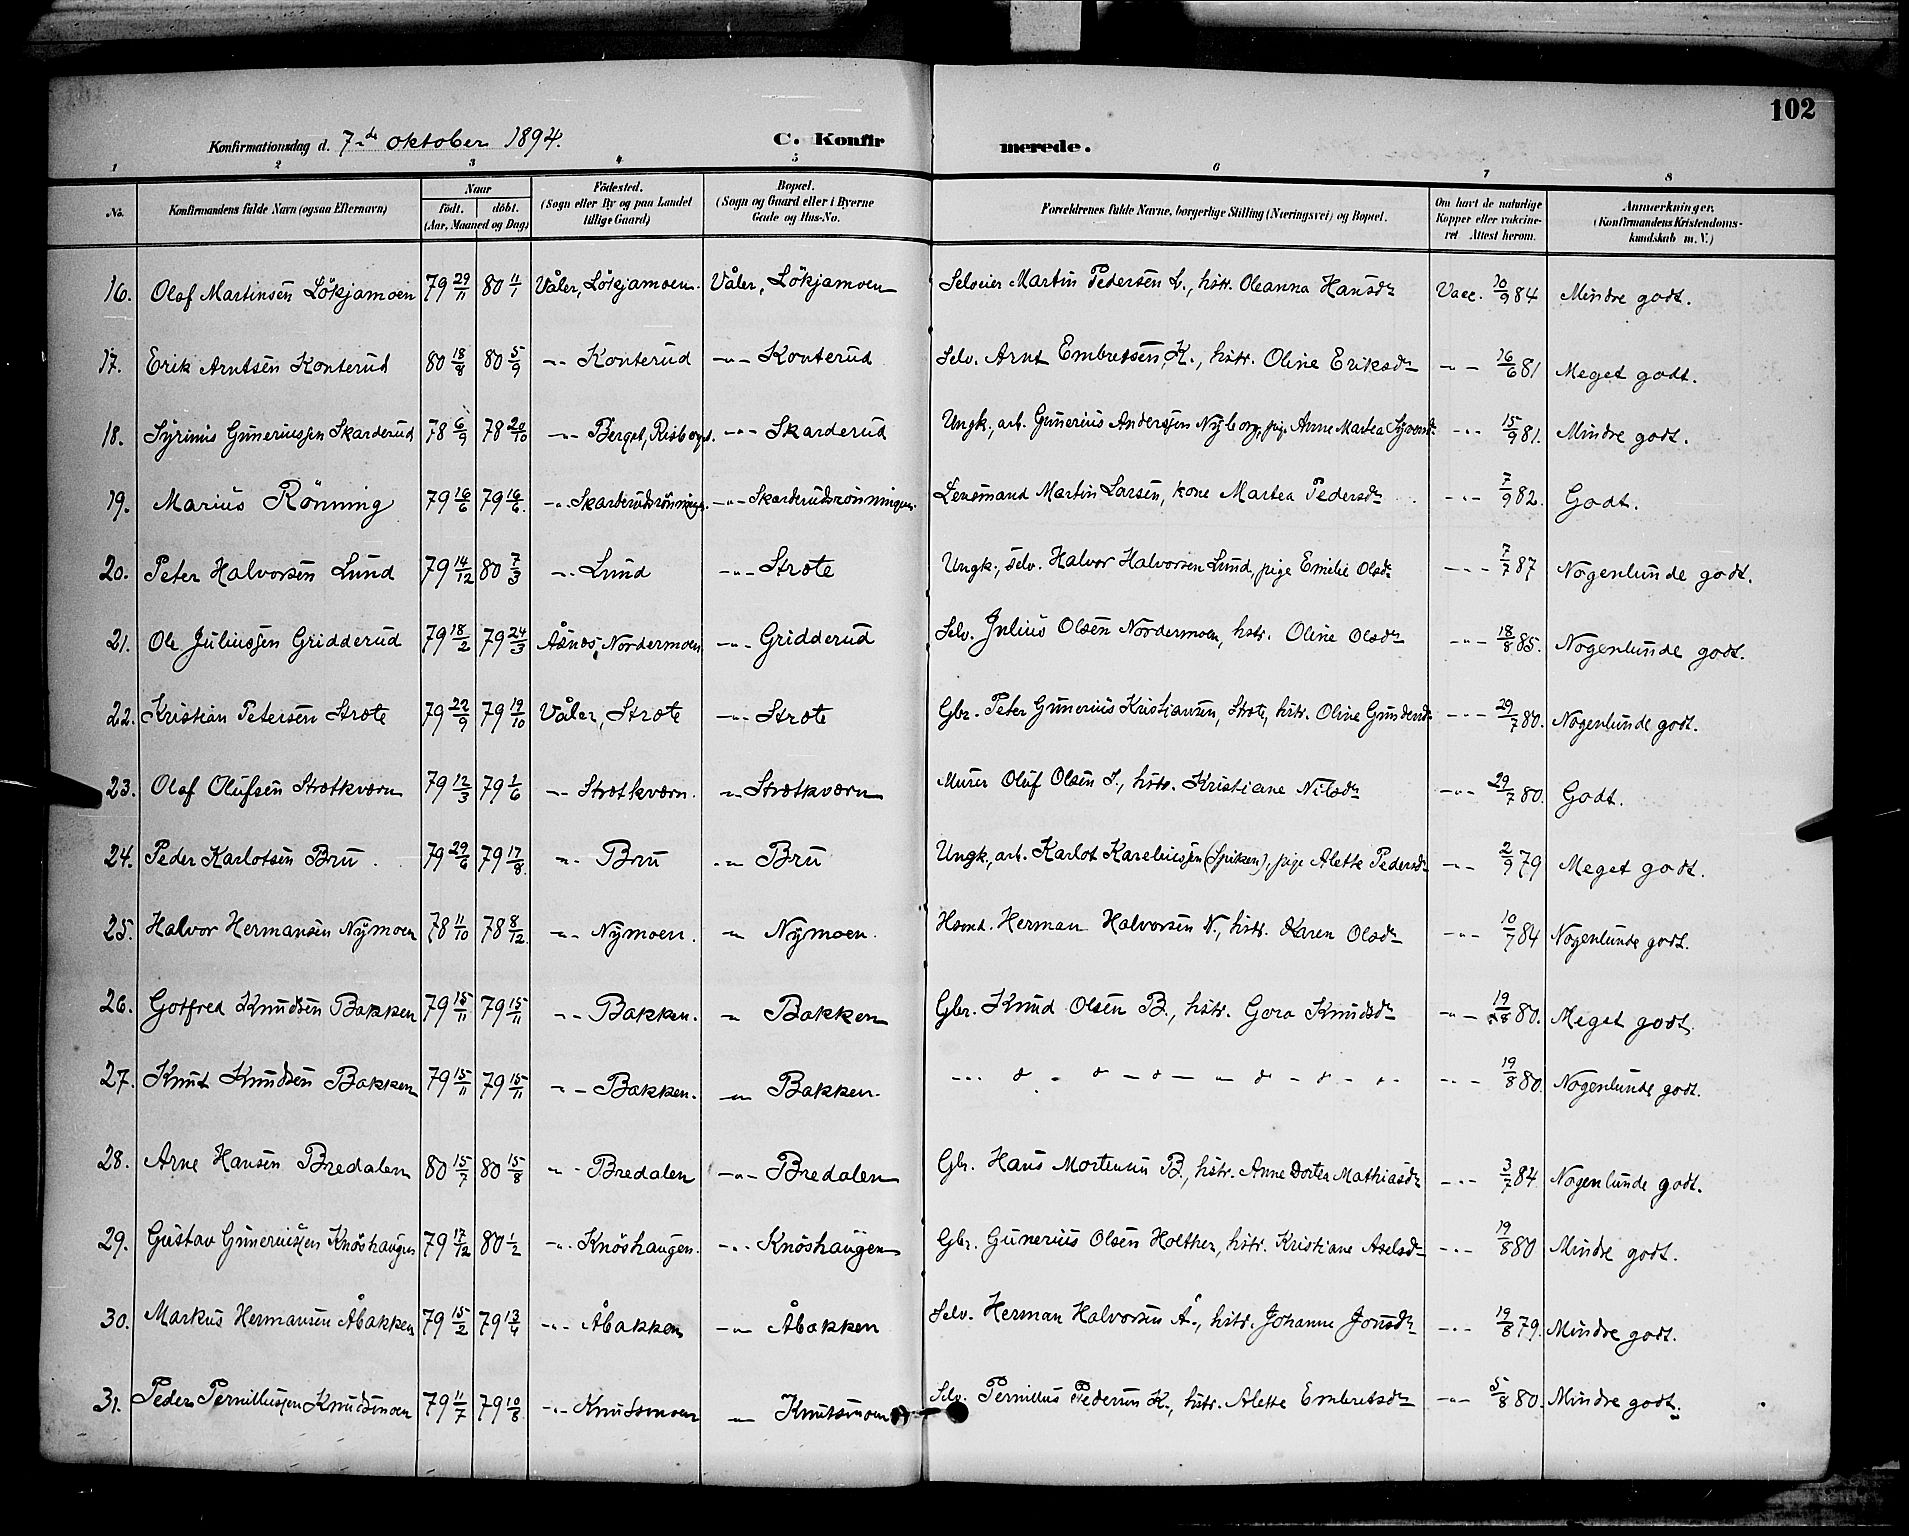 102
Konfirmationsdag d. 7de oktober 1894. C. Konfirmerede.
1 2 3 4 5 6 7 8
No. Konfirmandens fulde Navn (ogsaa Efternavn) Naar født. døbt. (Aar, Maaned og Dag) Födested. (Sogn eller By og paa Landet tillige Gaard) Bopæl. (Sogn og Gaard eller i Byerne Gade og Hus-No. Forældrenes fulde Navne, borgerlige Stilling (Næringsvei) og Bopæl. Om havt de naturlige Kopper eller vakcineret Attest herom. Anmærkninger. (Konfirmandens Kristendomskundskab m. V.)
16. Olaf Martinsen Lökjamoen 79 29/11 80 11/1 Våler, Lökjamoen. Våler, Lökjamoen Selveier Martin Pedersen L., hstr. Oleanna Hansdr Vacc. 10/9 84 Mindre godt.
17. Erik Arntsen Konterud 80 18/4 80 5/9 -"- Konterud -"- Konterud Selv. Arnt Embretsen K., hstr. Oline Eriksdr -"- 16/6 81 Meget godt.
18. Syrinus Guneriussen Skarderud 78 6/9 78 20/10 -"- Berget, Risbergs. -"- Skarderud Ungk., arb. Gunerius Anderssen Nyborg, pige Anne Martea Syversdr -"- 15/9 81. Mindre godt.
19. Marius Rönning 79 16/6 79 16/6. -"- Skarderudsrönningen. -"- Skarderudsrönningen. Lensmand Martin Larsen, kone Martea Pedersdr -"- 7/9 82. Godt.
20. Peter Halvorsen Lund 79 14/12 80 7/3 -"- Lund -"- Strøte Ungk., selv. Halvor Halvorsen Lund, pige Emelie Olsdr -"- 7/7 87 Nogenlunde godt.
21. Ole Juliussen Gridderud 79 18/2 79 24/3 Åsnes, Nordermoen -"- Gridderud Selv. Julius Olsen Nordermoen, hstr. Oline Olsdr -"- 18/8 85. Nogenlunde godt.
22. Kristian Petersen Strøte 79 22/9 79 19/10 Våler, Strøte -"- Strøte Gbr. Peter Gunerius Kristiansen, Strøte, hstr. Oline Gundersdr -"- 29/7 80. Nogenlunde godt.
23. Olaf Olufsen Strøtkværn 79 12/3 79 1/6 -"- Strøtkværn. -"- Strøtkværn Murer Oluf Olsen S., hstr. Kristiane Nilsdr -"- 29/7 80. Godt.
24. Peder Karlotsen Bru. 79 29/6 79 17/8. -"- Bru -"- Bru Ungk., arb. Karlot Kareliussen (Spikken), pige Alette Pedersdr -"- 2/9 79 Meget godt.
25. Halvor Hermansen Nymoen 78 11/10 78 8/12. -"- Nymoen. -"- Nymoen. Hsmd. Herman Halvorsen N., hstr. Karen Olsdr -"- 10/7 84 Nogenlunde godt.
26. Gotfred Knudsen Bakken 79 15/11 79 15/11 -"- Bakken. -"- Bakken Gbr. Knud Olsen B., hstr. Gora Knudsdr -"- 19/8 80. Meget godt.
27. Knut Knudsen Bakken 79 15/11 79 15/11 -"- Bakken. -"- Bakken. -"- -"- 19/8 80 Nogenlunde godt.
28. Arne Hansen Bredalen 80 15/7 80 15/8 -"- Bredalen -"- Bredalen Gbr. Hans Mortensen B., hstr. Anne Dortea Mathiasdr -"- 3/7 84 Nogenlunde godt.
29. Gustav Guneriussen Knöshaugen 79 17/12 80 1/2 -"- Knöshaugen. -"- Knöshaugen Gbr. Gunerius Olsen Holther, hstr. Kristiane Axelsdr -"- 19/8 80 Mindre godt.
30. Markus Hermansen Åbakken 79 15/2 79 13/4 -"- Åbakken -"- Åbakken Selv. Herman Halvorsen Å., hstr. Johanne Jonsdr -"- 19/8 79. Mindre godt.
31. Peder Pernillussen Knudsmoen 79 11/7 79 10/8. -"- Knudsmoen -"- Knutsmoen Selv. Pernillus Pedersen K., hstr. Alette Embretsdr -"- 5/8 80. Mindre godt.